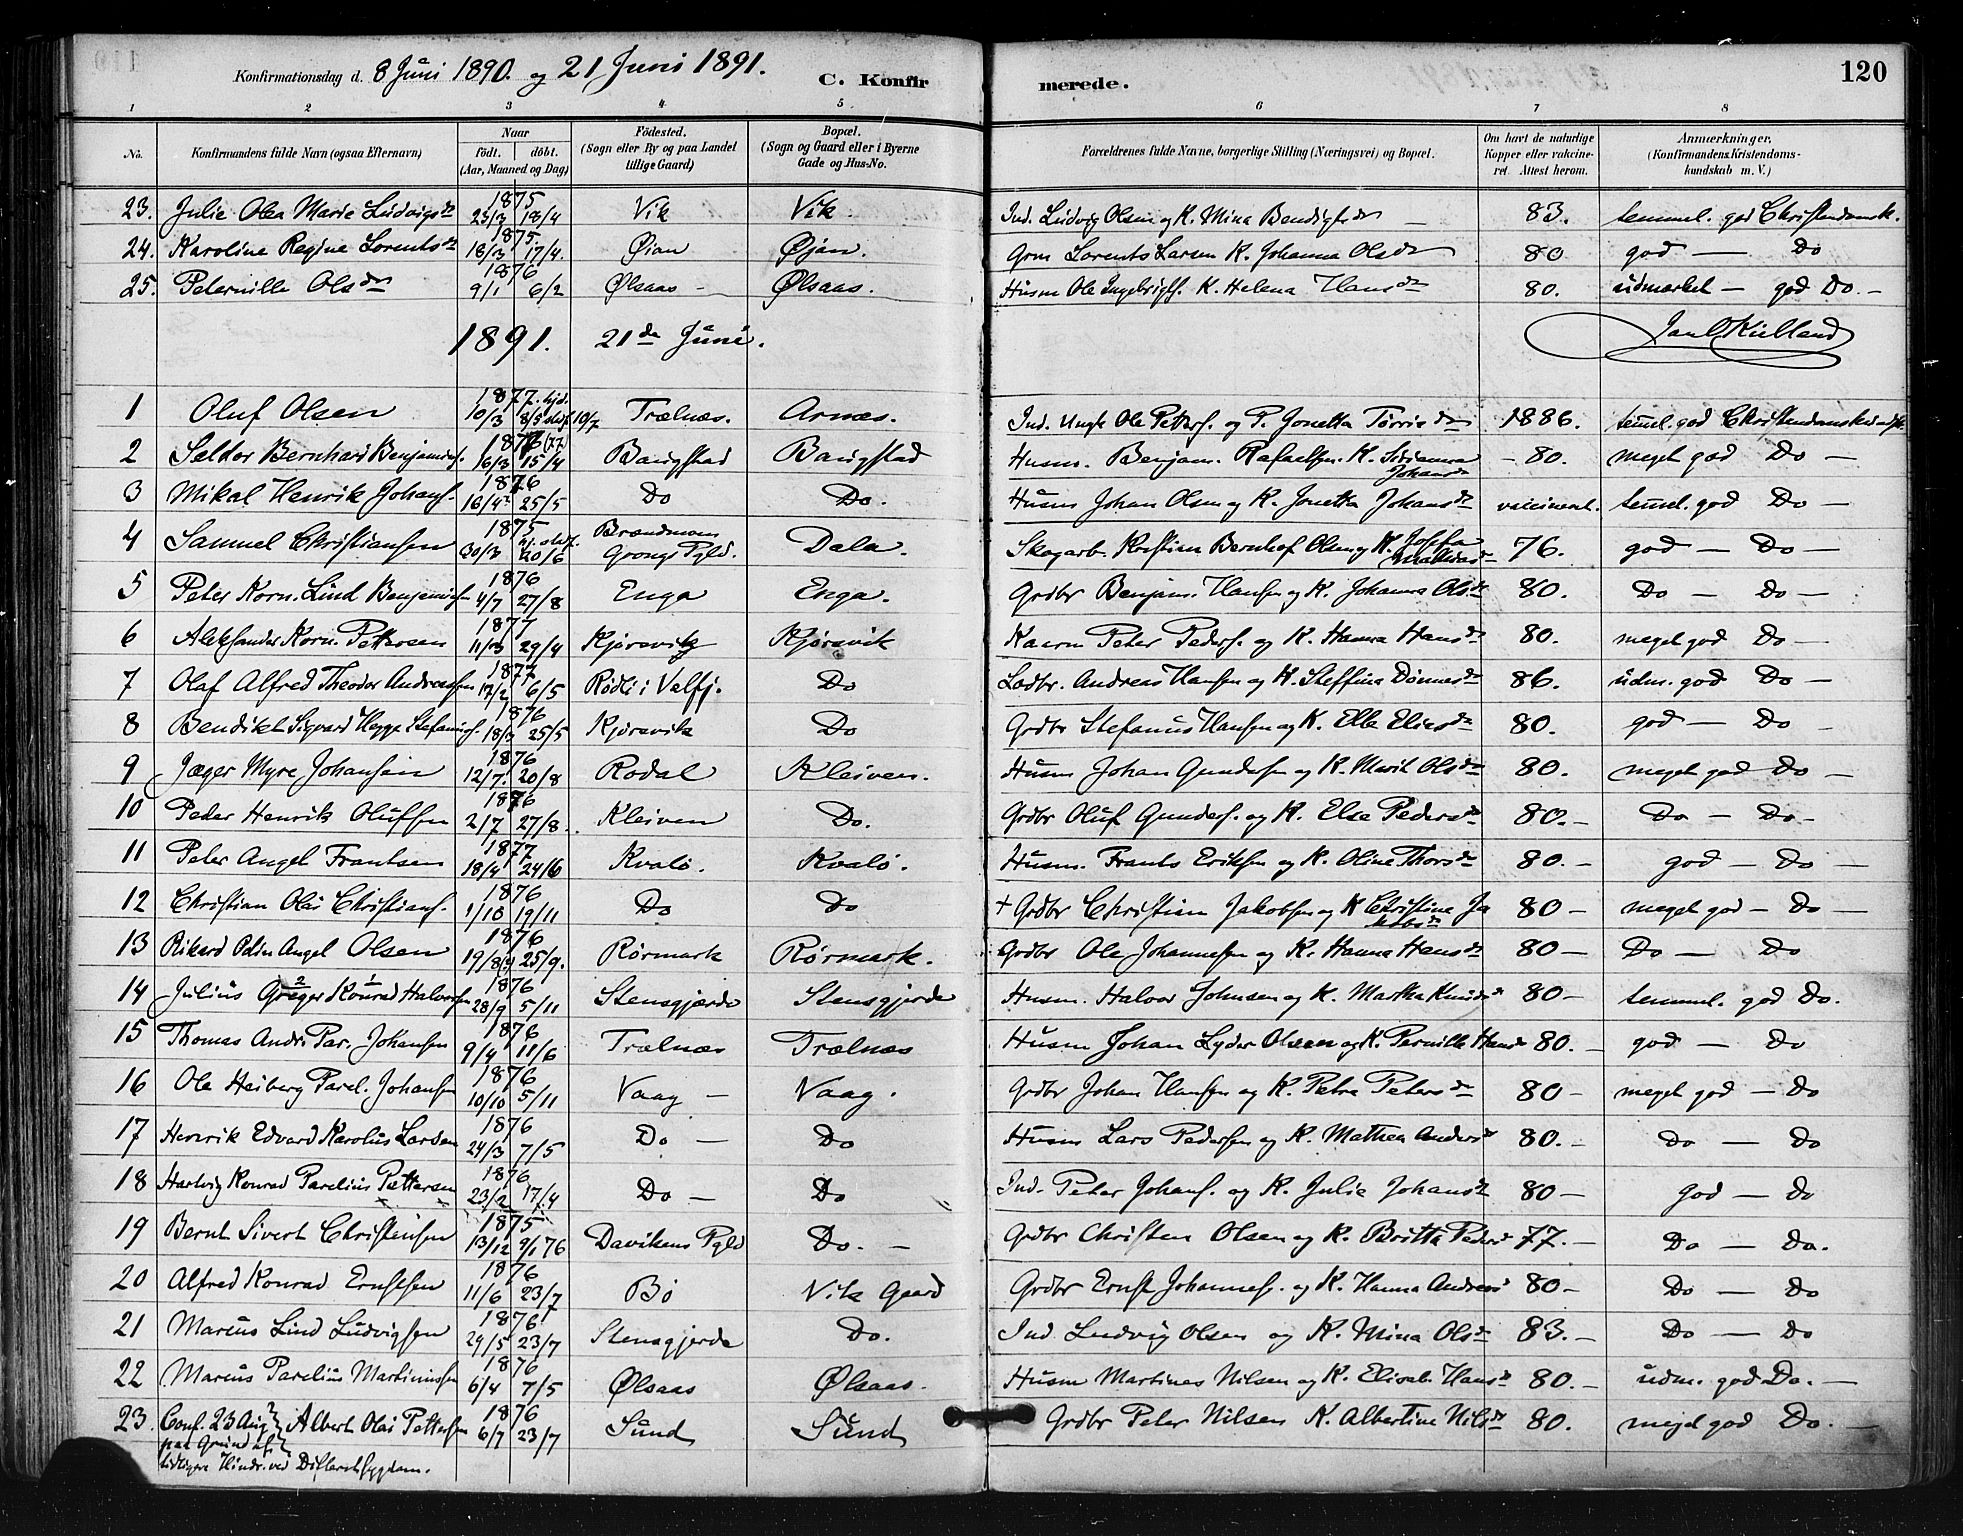 Konfirmationsdag d. 8 Juni 1890. og 21 Juni 1891. C. Konfirmerede. 120
1 2 3 4 5 6 7 8
No. Konfirmandens fulde Navn (ogsaa Efternavn) Naar født. døbt. (Aar, Maaned og Dag) Fødested. (Sogn eller By og paa Landet tillige Gaard) Bopæl. (Sogn og Gaard eller i Byerne Gade og Hus-No. Forældrenes fulde Navne, borgerlige Stilling (Næringsvei) og Bopæl. Om havt de naturlige Kopper eller vakcineret. Attest herom. Anmærkninger, (Konfirmandens Kristendomskundskab m. V.)
23. Julie Olea Marie Ludvigsdr 1875 23/3 18/4 Vik Vik. Ind. Ludvig Olsen og K. Mina Bendigtsdr 83. temmel. god Christendomsk.
24. Karoline Regine Lorentsdr 1875. 18/3 17/4. Øian Øjan. Grm Lorents Larsen K. Johanna Olsdr 80 god — Do
25. Peternille Olsdr 1876 9/1 6/2 Ølsaas — Ølsaas. Husm Ole Ingebrigts. K. Helena Hansdr 80. udmerket — god Do. —
1891. 21de Juni. Jan O Kielland
1 Oluf Olsen 1877. hjd. 10/3 8/5 stdf. 10/7 Trælnæs. Arnæs. Ind. Ungk Ole Petters. og P. Jonetta Tørrisdr 1886. temmel. god Christendomskundsk.
2 Seldor Bernhard Benjamins. 1876 (77) 16/3 15/4 Bangstad Bangstad Husm. Benjam. Rafaelsen. K. Johansdr — 80. meget god Do —
3 Mikal Henrik Johans. 1876 16/4 25/5 Do Do. Husm Johan Olsen og K. Jonetta Johansdr vaccineret. temmel. god Do —
4 Samuel Christiansen 1875 30/3 stdf. 20/6 Brændmoen Grongs Pgld. Dala. Skogarb. Kristian Bernhof Olsen og K. Josefa 76. god — Do —
5 Peter Korn. Lind Benjaminsen 1876 4/7 27/8 Enga Enga. Grdbr Benjam. Hansen og K. Johanna Olsdr 80. Do — Do —
6 Aleksander Korn. Pettersen 1877 11/3 29/4 Kjørsvik Kjørsvik Kaarm Peter Peders. og K. Hanna Hansdr 80. meget god Do —
7 Olaf Alfred Theodor Andreassen 1877 17/2 6/5 Rødli i Velfj. Do Lodbr. Andreas Hansen og K. Steffina Dønnesdr 86. udm. god Do —
8 Bendikt Sigvard Hegge Stefanus. 1876 18/3 25/5 Kjørsvik Do Grdbr Stefanus Hansen og K. Elle Eliasdr 80. god — Do
9 Jæger Myre Johansen 1876 12/7. 20/8 Rodal Kleiven. Husm Johan Gundersen og K. Marit Olsdr 80. meget god Do —
10 Peder Henrik Olufsen 1876 2/7 27/8. Kleiven Do. Grdbr Oluf Gunders. og K. Else Pedersdr 80. — Do — Do —
11 Peter Angel Frantsen 1877 18/4 24/6 Kvalø. Kvalø. Husm. Frants Eriksen og K. Oline Thorsdr 80. — god — Do —
12 Christian Olai Christians. 1876 1/10 19/11 Do Do + Grdbr Christian Jakobsen og K Christina Jakobsdr 80 — meget god — Do —
13 Rikard Odin Angel Olsen 1876 19/8 25/9. Rørmark Rørmark. Grdbr Ole Johannesen og K. Hanna Hansdr 80 — Do — Do
14 Julius Greger 2 Konrad 1 Halvorsen 1876 28/9 5/11 Stensgjerde Stensgjerde Husm. Halvor Johnsen og K. Martha Knudsdr 80 — temmel. god Do.
15 Thomas Andr. Par. Johansen 1876 9/4 11/6 Trælnæs Trælnæs Husm Johan Lyder Olsen og K. Pernille Hansdr 80. — god — Do
16 Ole Heiberg Parel. Johansen 1876 10/10 5/11 Vaag — Vaag. Grdbr Johan Hansen og K. Petra Petersdr 80 — meget god — Do
17 Henrik Edvard Karolus Larsen 1876 24/3 7/5 Do — Do Husm Lars Pedersen og K. Mathea Andersdr 80. — Do — Do
18 Hartvig Konrad Parelius Pettersen 1876 23/2 17/4 Do — Do Ind. Peter Johans. og K. Julie Johansdr 80 — god — do
19 Bernt Sivert Christensen 1875 13/12 9/1 76 Davikens Pgld Do. — Grdbr Christen Olsen og K. Britta Pedersd 77. — Do — Do.
20 Alfred Konrad Ernstsen 1876 11/6 23/7 Bø Vik Gaard Grdbr Ernst Johannes. og K. Hanna Andreasd 80 — Do — Do
21 Marcus Lind Ludvigsen 1876 29/5 23/7 Stensgjerde Do. Ind Ludvig Olsen og K. Mina Olsdr 83. — Do — Do
22 Marcus Parelius Martinussen 1876 6/4 7/5 Ølsaas Ølsaas. Husm Martines Nilsen og K. Elisab. Hansdr 80. — udm. god Do. —
23. Conf. 23 Aug Albert Olai Pettersen 1876 6/7 23/7 Sund Sund Grdbr Peter Nilsen K. Albertine Nilsdr 80. meget god Do. —
paa Grund af
tidligere Hindr. ved Difteritsygdom.